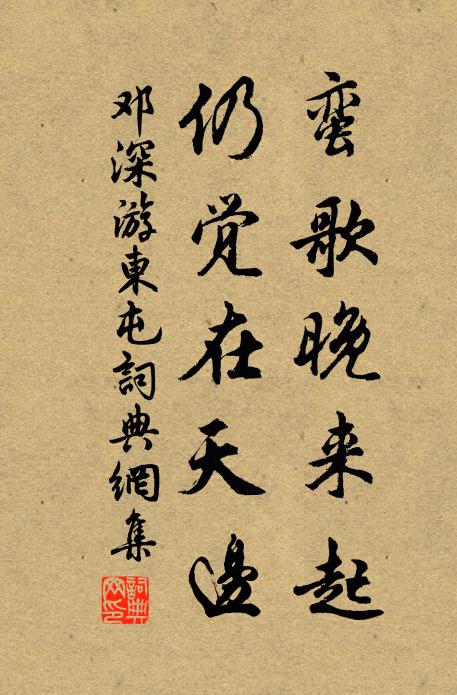 蛮歌晚来起
仍觉在天邊
邓深游東屯詞典網集
詞典網印